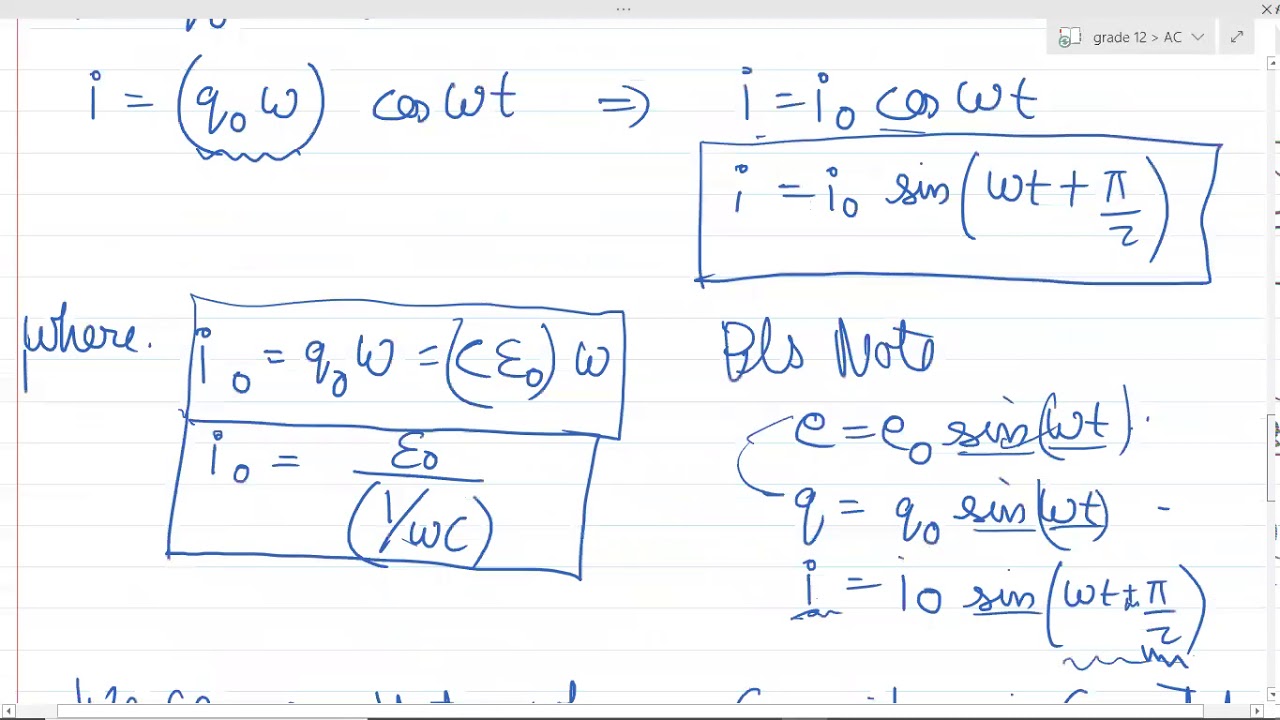 grade 12 > AC
i = (q₀ω) cos ωt ⇒ i = i₀ cos ωt
i = i₀ sin(ωt + π/2)
where.
i₀ = q₀ω = (Cε₀)ω
i₀ = ε₀/(1/ωC)
Pls Note
e = e₀ sin(ωt)
q = q₀ sin(ωt) -
i = i₀ sin(ωt + π/2)